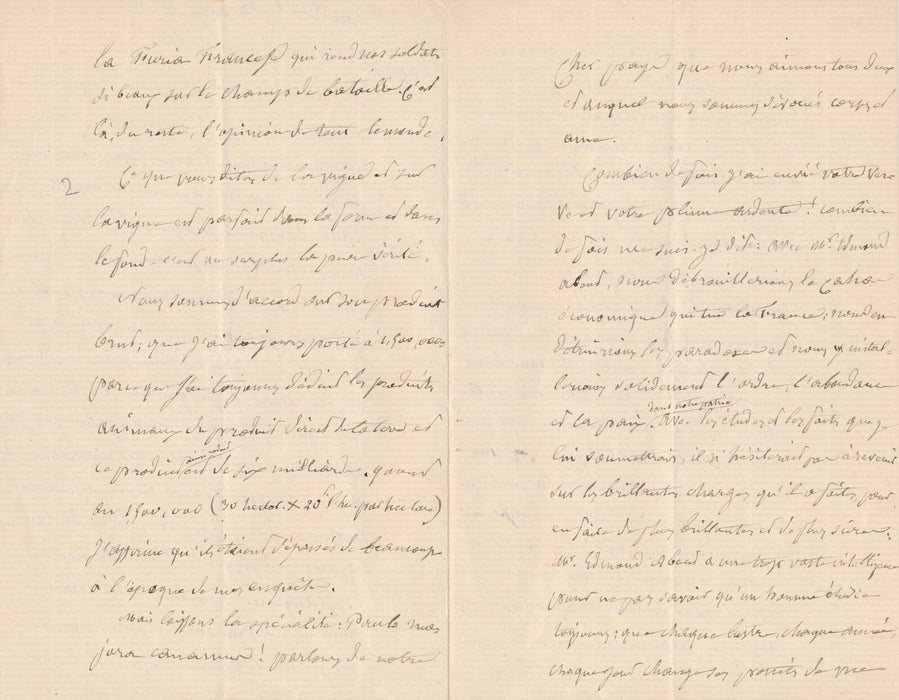 la Furia Francese qui rend nos soldats
si beaux sur le champs de bataille. C'est
là, du reste, l'opinion de tout le monde.
2
Ce que vous dites de la vigne et sur
la vigne est parfait dans la forme et dans
le fond c'est au surplus la pure vérité.
Nous sommes d'accord sur son produit
brut; que j'ai toujours porté à 1,500,000
parceque j'ai toujours déduit les produits
animaux du produit direct de la terre et
ce produit de six milliards. quand
au 1500,000 (30 hectol. x 25f l'hec. par hectare)
j'affirme qu'ils étaient dépassés de beaucoup
à l'époque de mes enquêtes.
Mais laissons la spécialité: Paulo majora canamus! parlons de notre
Cher pays que nous aimons tous deux
et auquel nous sommes dévoués corps et
ame.
Combien de fois j'ai envié votre verve et votre plume ardente! combien
de fois me suis-je dit: avec Mr. Edmond
About, nous débrouillerions le cahos
économique qui tue la France; nous en
détruirions les paradoxes et nous y installerions solidement l'ordre, l'abondance
dans notre patrie
et la paix. Avec les études et les faits que je
lui soumettrais, il n'hésiterait pas à revenir
sur les brillantes charges qu'il a faites, pour
en faire de plus brillantes et de plus sûres.
Mr. Edmond About a une trop vaste intelligence
pour ne pas savoir qu'un homme étudie
toujours: que chaque lustre, chaque année,
chaque jour change ses points de vue